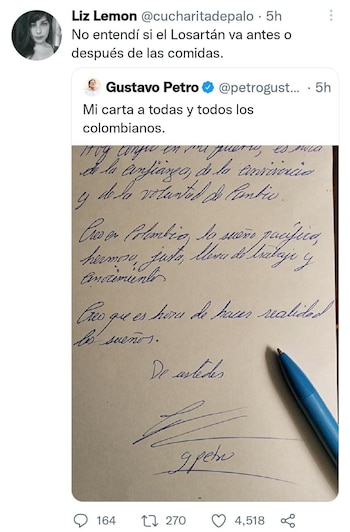 Liz Lemon @cucharitadepalo · 5h
No entendí si el Losartán va antes o
después de las comidas.
Gustavo Petro @petrogust... · 5h
Mi carta a todas y todos los
colombianos.
Hoy confío en mi pueblo, es hora
de la confianza, de la convivencia
y de la voluntad de cambio.
Creo en Colombia, la sueño pacífica,
hermosa, justa, llena de trabajo y
conocimiento
Creo que es hora de hacer realidad
los sueños.
De ustedes
g petro
164 270 4,518